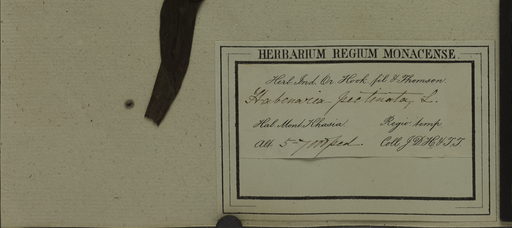 HERBARIUM REGIUM MONACENSE.
Herb. Ind. Or. Hook. fil. & Thomson.
Habenaria pectinata, L.
Hab. Mont. Khasia Regio temp.
Alt. ped. Coll. J.D.H. & T.T.